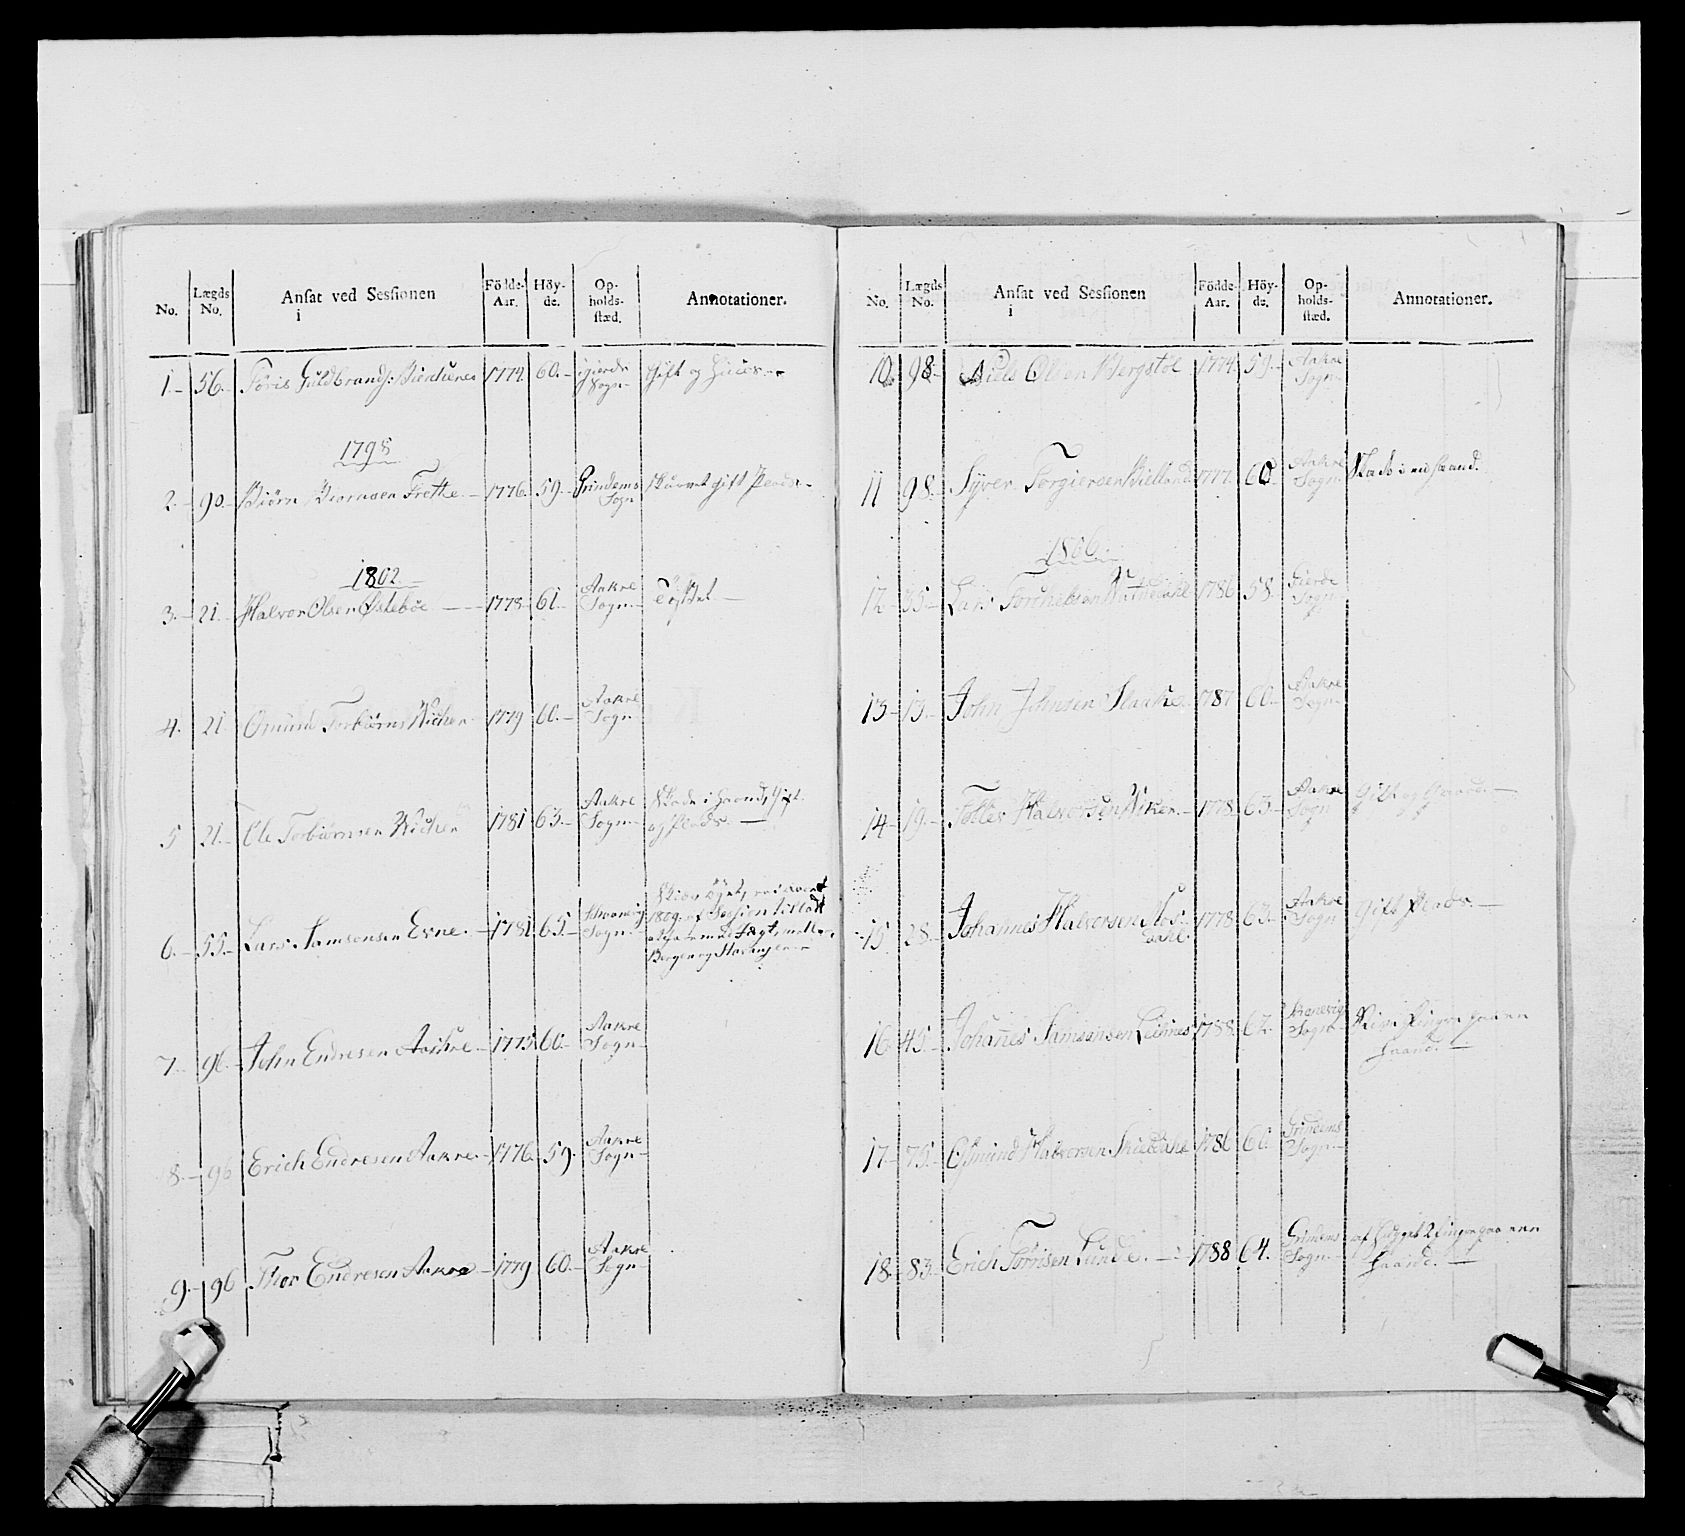 No. Lægds No. Ansat ved Sessionen i Födde-Aar. Höy-de. Op-holds-stæd. Annotationer.
1. 56. Töris Guldbrands: 1774 60. Gierde Sogn Gift og Huus
1798
2. 90. Biörn Biornsen Frette 1776 59. Grindems Sogn gift Plads
1802
3. 21. Halvor Olsen Østebøe 1778 61. Aakre Sogn
4. 21 Omund Torbiörns Vichen 1779 60. Aakre Sogn
5 21. Ole Torbiörnsen Vichen 1781 63. Aakre Sogn Skade i Haand, Gift og Plads.
6. 55. Lars Samsonsen Evne. 1781 65. Schonevig Sogn
1809 af Sessien tilladt
Bergen og Stavanger
7. 96. John Endresen Aakre 1775 60. Aakre Sogn
8. 96 Erich Endresen Aakre 1776 59. Aakre Sogn
9. 96 Thor Endresen Aakre 1779 60. Aakre Sogn
No. Lægds No. Ansat ved Sessionen i Födde-Aar. Höy-de. Op-holds-stæd. Annotationer.
10. 98. Niels Olsen Bergstöl 1774 59. Aakre Sogn
11 98. Syver Torgiersen Bielland 1777 60. Aakre Sogn Skade i en Haand.
1806.
12 35 Lars Torchelsen 1786 58 Gierde Sogn
13 13. John Johnsen Haaker 1787 60. Aakre Sogn
14 19. Tollev Halvorsen Viken 1778 63. Aakre Sogn Gift og Gaard.
15 28 Johannes Halvorsen Mosdahl 1778 63 Aakre Sogn Gift Plads.
16. 45. Johañes Samsonsen Leknes 1788 62 Skonevig Sogn Stive Fingre paa en Haand.
17. 75. Osmund Halvorsen Skieldahl 1786 66 Grindems Sogn
18. 83. Erich Törrisen Lunde. 1788 64. Grindems Sogn af hugget 2 fingre paa een Haand.